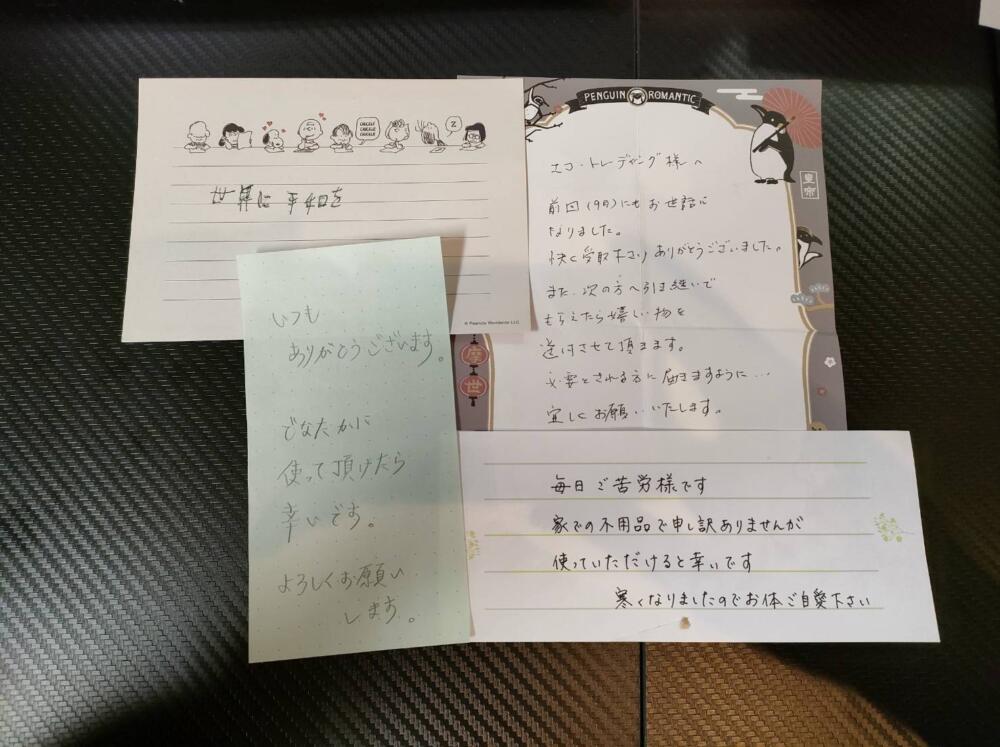 CHUCKLE
CHUCKLE
CHUCKLE
Z
世界に 平和を
© Peanuts Worldwide LLC
PENGUIN ROMANTIC
皇帝
エコ・トレーディング様へ
前回(9月)にもお世話に
なりました。
快く受取下さりありがとうございました。
また、次の方へ引き継いで
もらえたら嬉しい物を
送付させて頂きます。
必要とされる方に届きますように…
宜しくお願いいたします。
摩
世
いつも
ありがとうございます。
どなたかに
使って頂けたら
幸いです。
よろしくお願い
します。
毎日ご苦労様です
家での不用品で申し訳ありませんが
使っていただけると幸いです
寒くなりましたのでお体ご自愛下さい